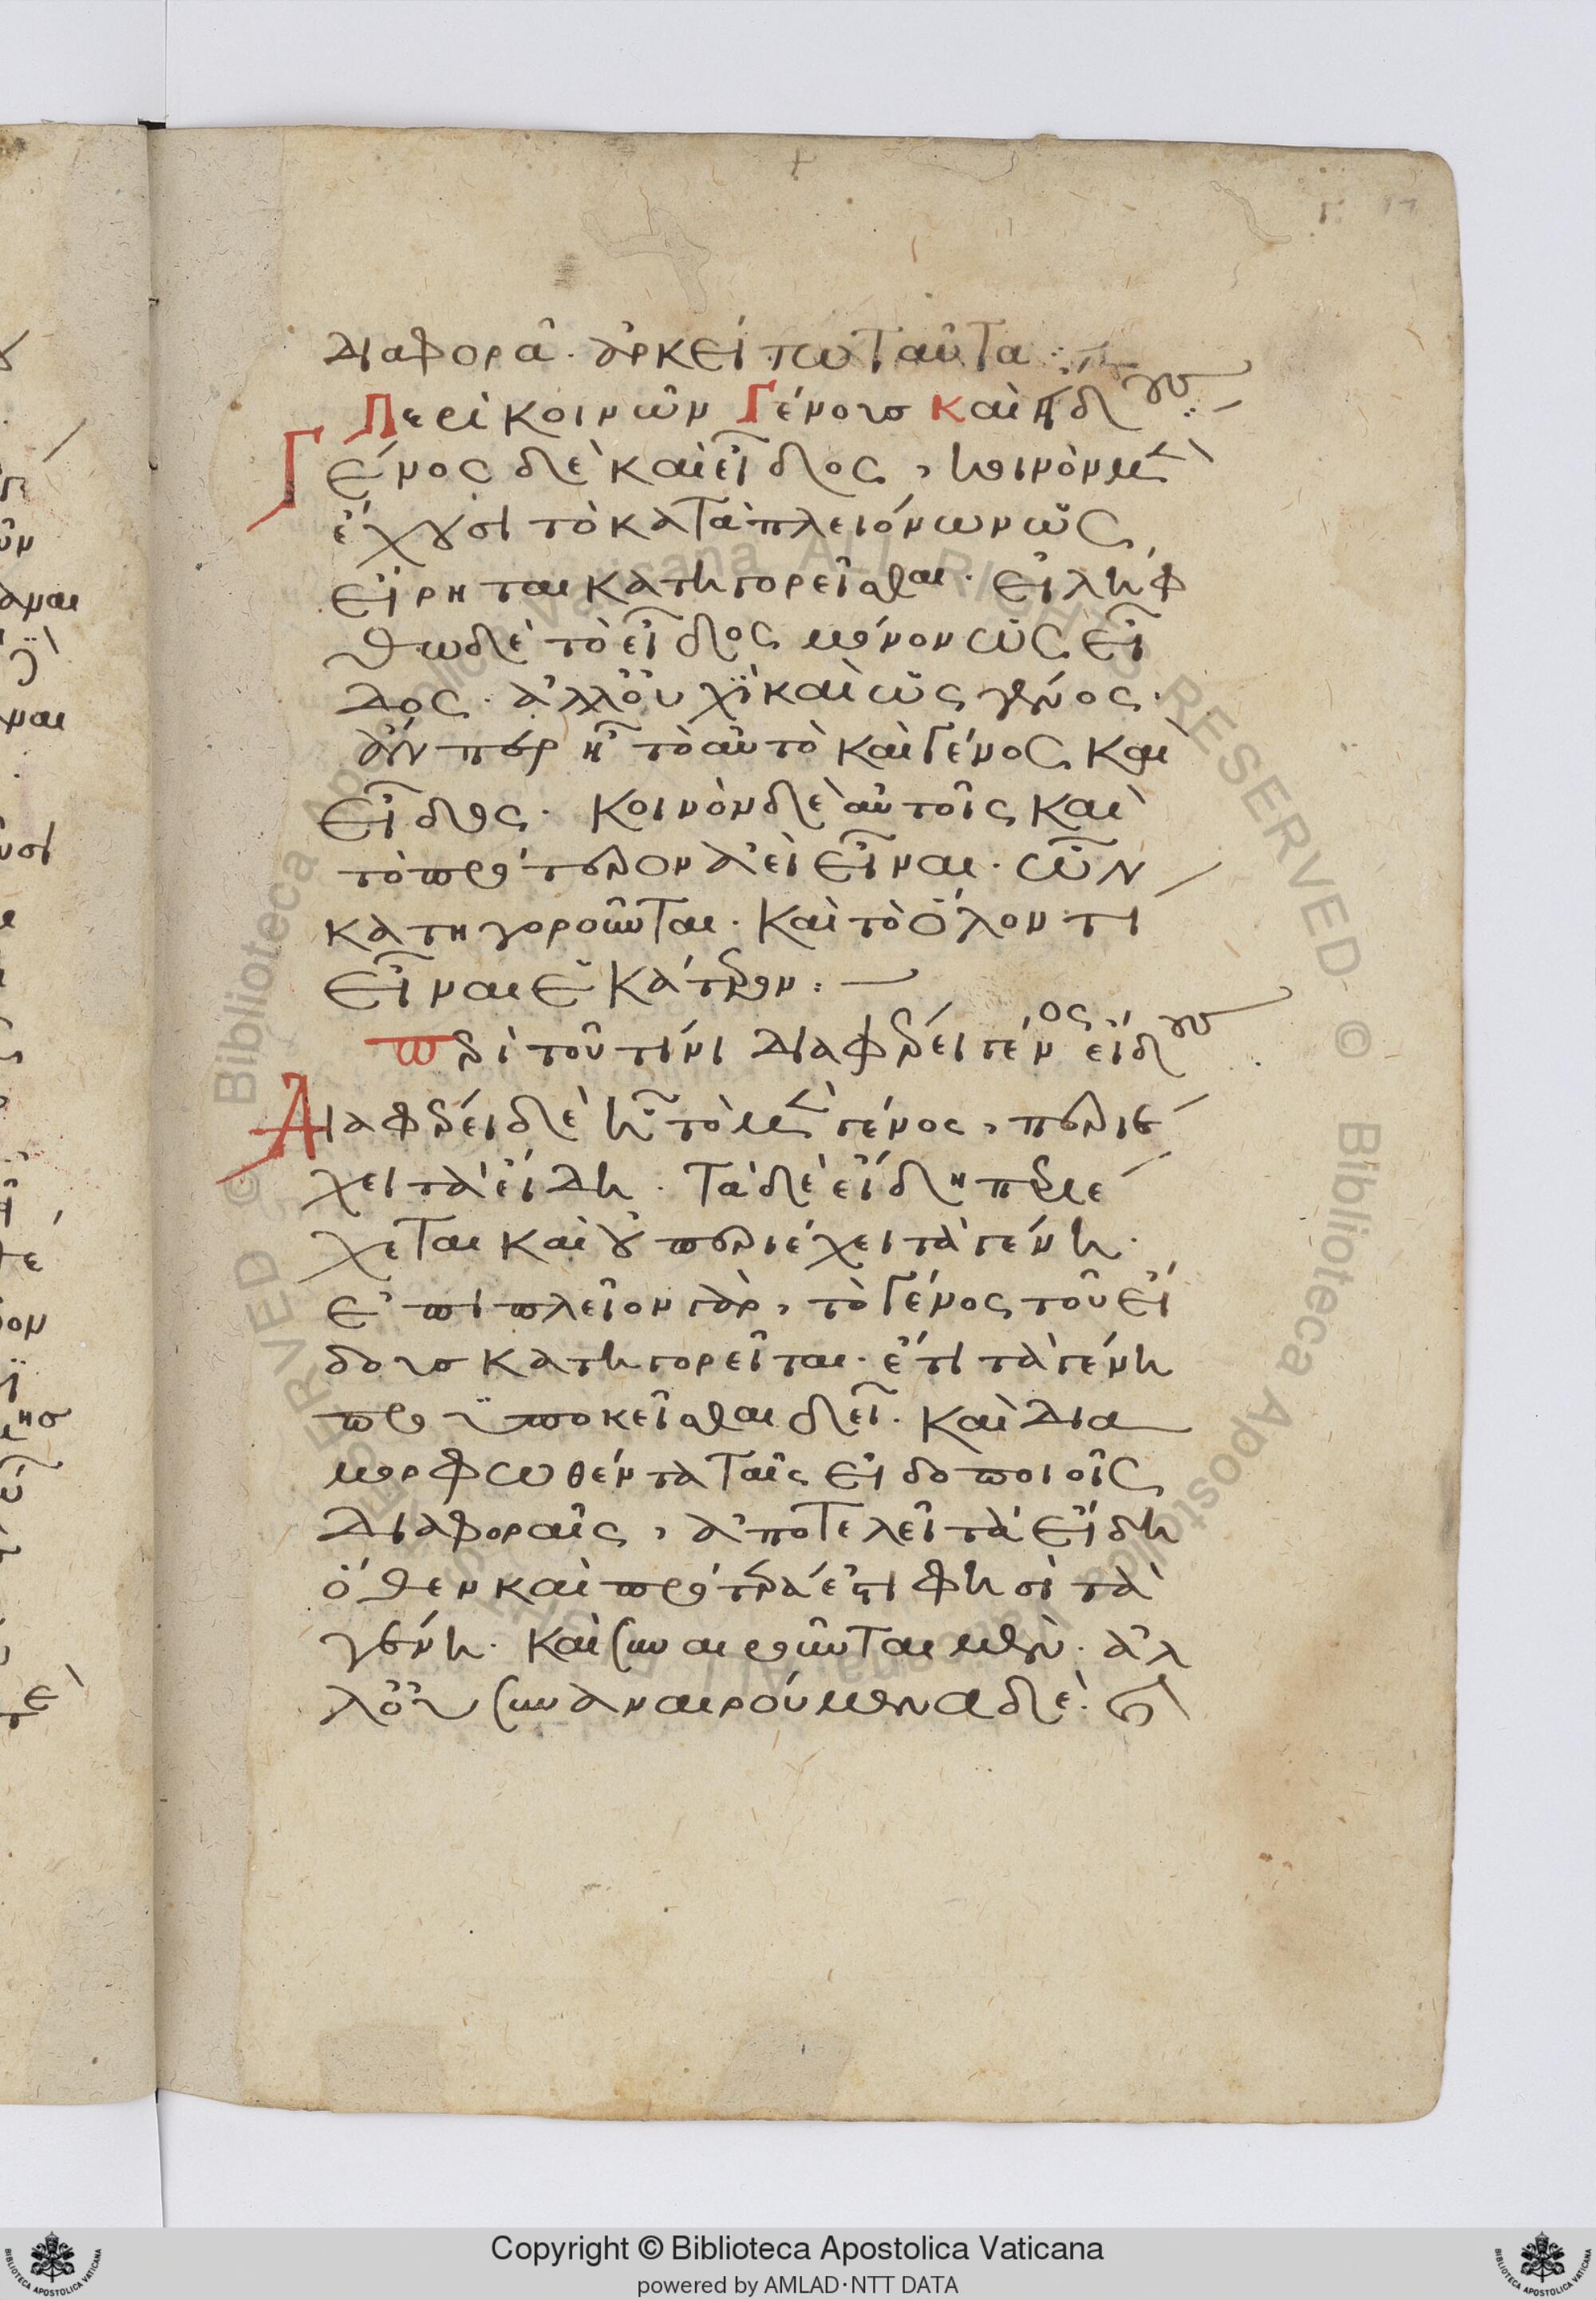 διαφορᾶ. ἀρκείτω ταῦτα :
Περὶ κοινῶν Γένους καὶ εἴδους :
Γένος δὲ καὶ εἶδος, κοινὸν μὲν
ἔχουσι τὸ κατὰ πλειόνων ὡς
εἴρηται κατηγορεῖσθαι. εἰλήφ
θω δὲ τὸ εἶδος μόνον ὡς εἶ
δος. ἀλλ' οὐχὶ καὶ ὡς γένος.
ἄν περ ἦ τὸ αὐτὸ καὶ Γένος και
εἶδος. κοινὸν δὲ αὐτοῖς καὶ
τὸ πρότερον ἀεὶ εἶναι. ὧν
κατηγοροῦνται. καὶ τὸ ὅλον τι
εἶναι ἑκάτερον : —
περὶ τοῦ τίνι διαφέρει γένος εἴδους
Διαφέρει δὲ ἧ τὸ μὲν γένος, περιέ
χει τὰ εἴδη. τὰ δὲ εἴδη περιέ
χεται καὶ οὐ περιέχει τὰ γένη.
ἐπι πλεῖον γὰρ, τὸ Γένος τοῦ εἴ
δους κατηγορεῖται. ἔτι τὰ γένη
προϋποκεῖσθαι δεῖ. καὶ δια
μορφωθέντα ταῖς εἰδοποιοῖς
διαφοραῖς, ἀποτελεῖ τὰ εἴδη
ὅθεν καὶ πρότερα ἔτι φησὶ τὰ
γένη. καὶ συναιροῦνται μὲν. ἀλ
λ' οὐ συναναιρούμενα δέ.
Copyright © Biblioteca Apostolica Vaticana
powered by AMLAD·NTT DATA